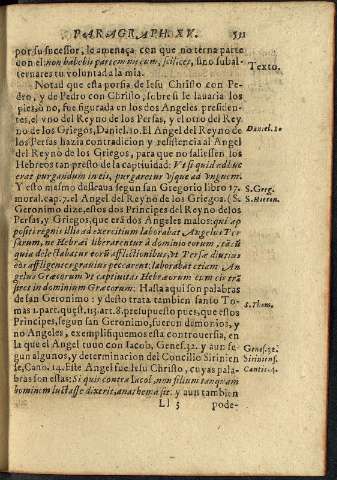 PARAGRAPH. XV. 531
por su sucessor, le amenaça con que no terna parte
con el non habebis partem mecum, scilicet, sino subal-
ternares tu voluntad a la mia.
Texto.
Notad que esta porfia de Iesu Christo con Pe-
dro, y de Pedro con Christo, sobre si le lauaria los
pies, o no, fue figurada en los dos Angeles presiden-
tes, el vno del Reyno de los Persas, y el otro del Rey
no de los Griegos, Daniel. 10. El Angel del Reyno de
Daniel. 10
los Persas hazia contradicion y resistencia al Angel
del Reyno de los Griegos, para que no saliessen los
Hebreos tan presto de la captiuidad: Vt si quid adhuc
erat purgandum in eis, purgaretur vsque ad vnguem.
Y esto mismo desseaua segun san Gregorio libro 17.
S. Greg.
moral. cap. 7. el Angel del Reyno de los Griegos. (S.
S. Hieron.
Geronimo dize, estos dos Principes del Reyno de los
Persas, y Griegos, que erã dos Angeles malos: qui ap
positi regni illi ad exercitium laborabat Angelus Per
sarum, ne Hebræi liberarentur à dominio eorum,
quia delectabatur eorũ afflictionibus, & Persæ diutius
eos affligences grauius peccarent: laborabat etiam An-
gelus Græcorum vt captiuitas Hebræorum
spes in dominium Græcorum: Hasta aqui son palabras
de san Geronimo: y desto trata tambien santo To-
mas 1. part. quæst. 113. art. 8. presupuesto pues, que estos
S. Thom.
Principes, segun san Geronimo, fueron demonios, y
no Angeles, exemplifiquemos esta controuersia, en
la que el Angel tuuo con Iacob, Genes. 32. y aun se-
Genes. 32.
gun algunos, y determinacion del Concilio Sirinien
Siriniens.
se, Cano. 14. Este Angel fue Iesu Christo, cuyas pala-
bras son estas: Si quis contra Iacob, non filium tanquam
hominem luctasse dixerit, anathema sit: y aun tambien
Ll 3 pode-